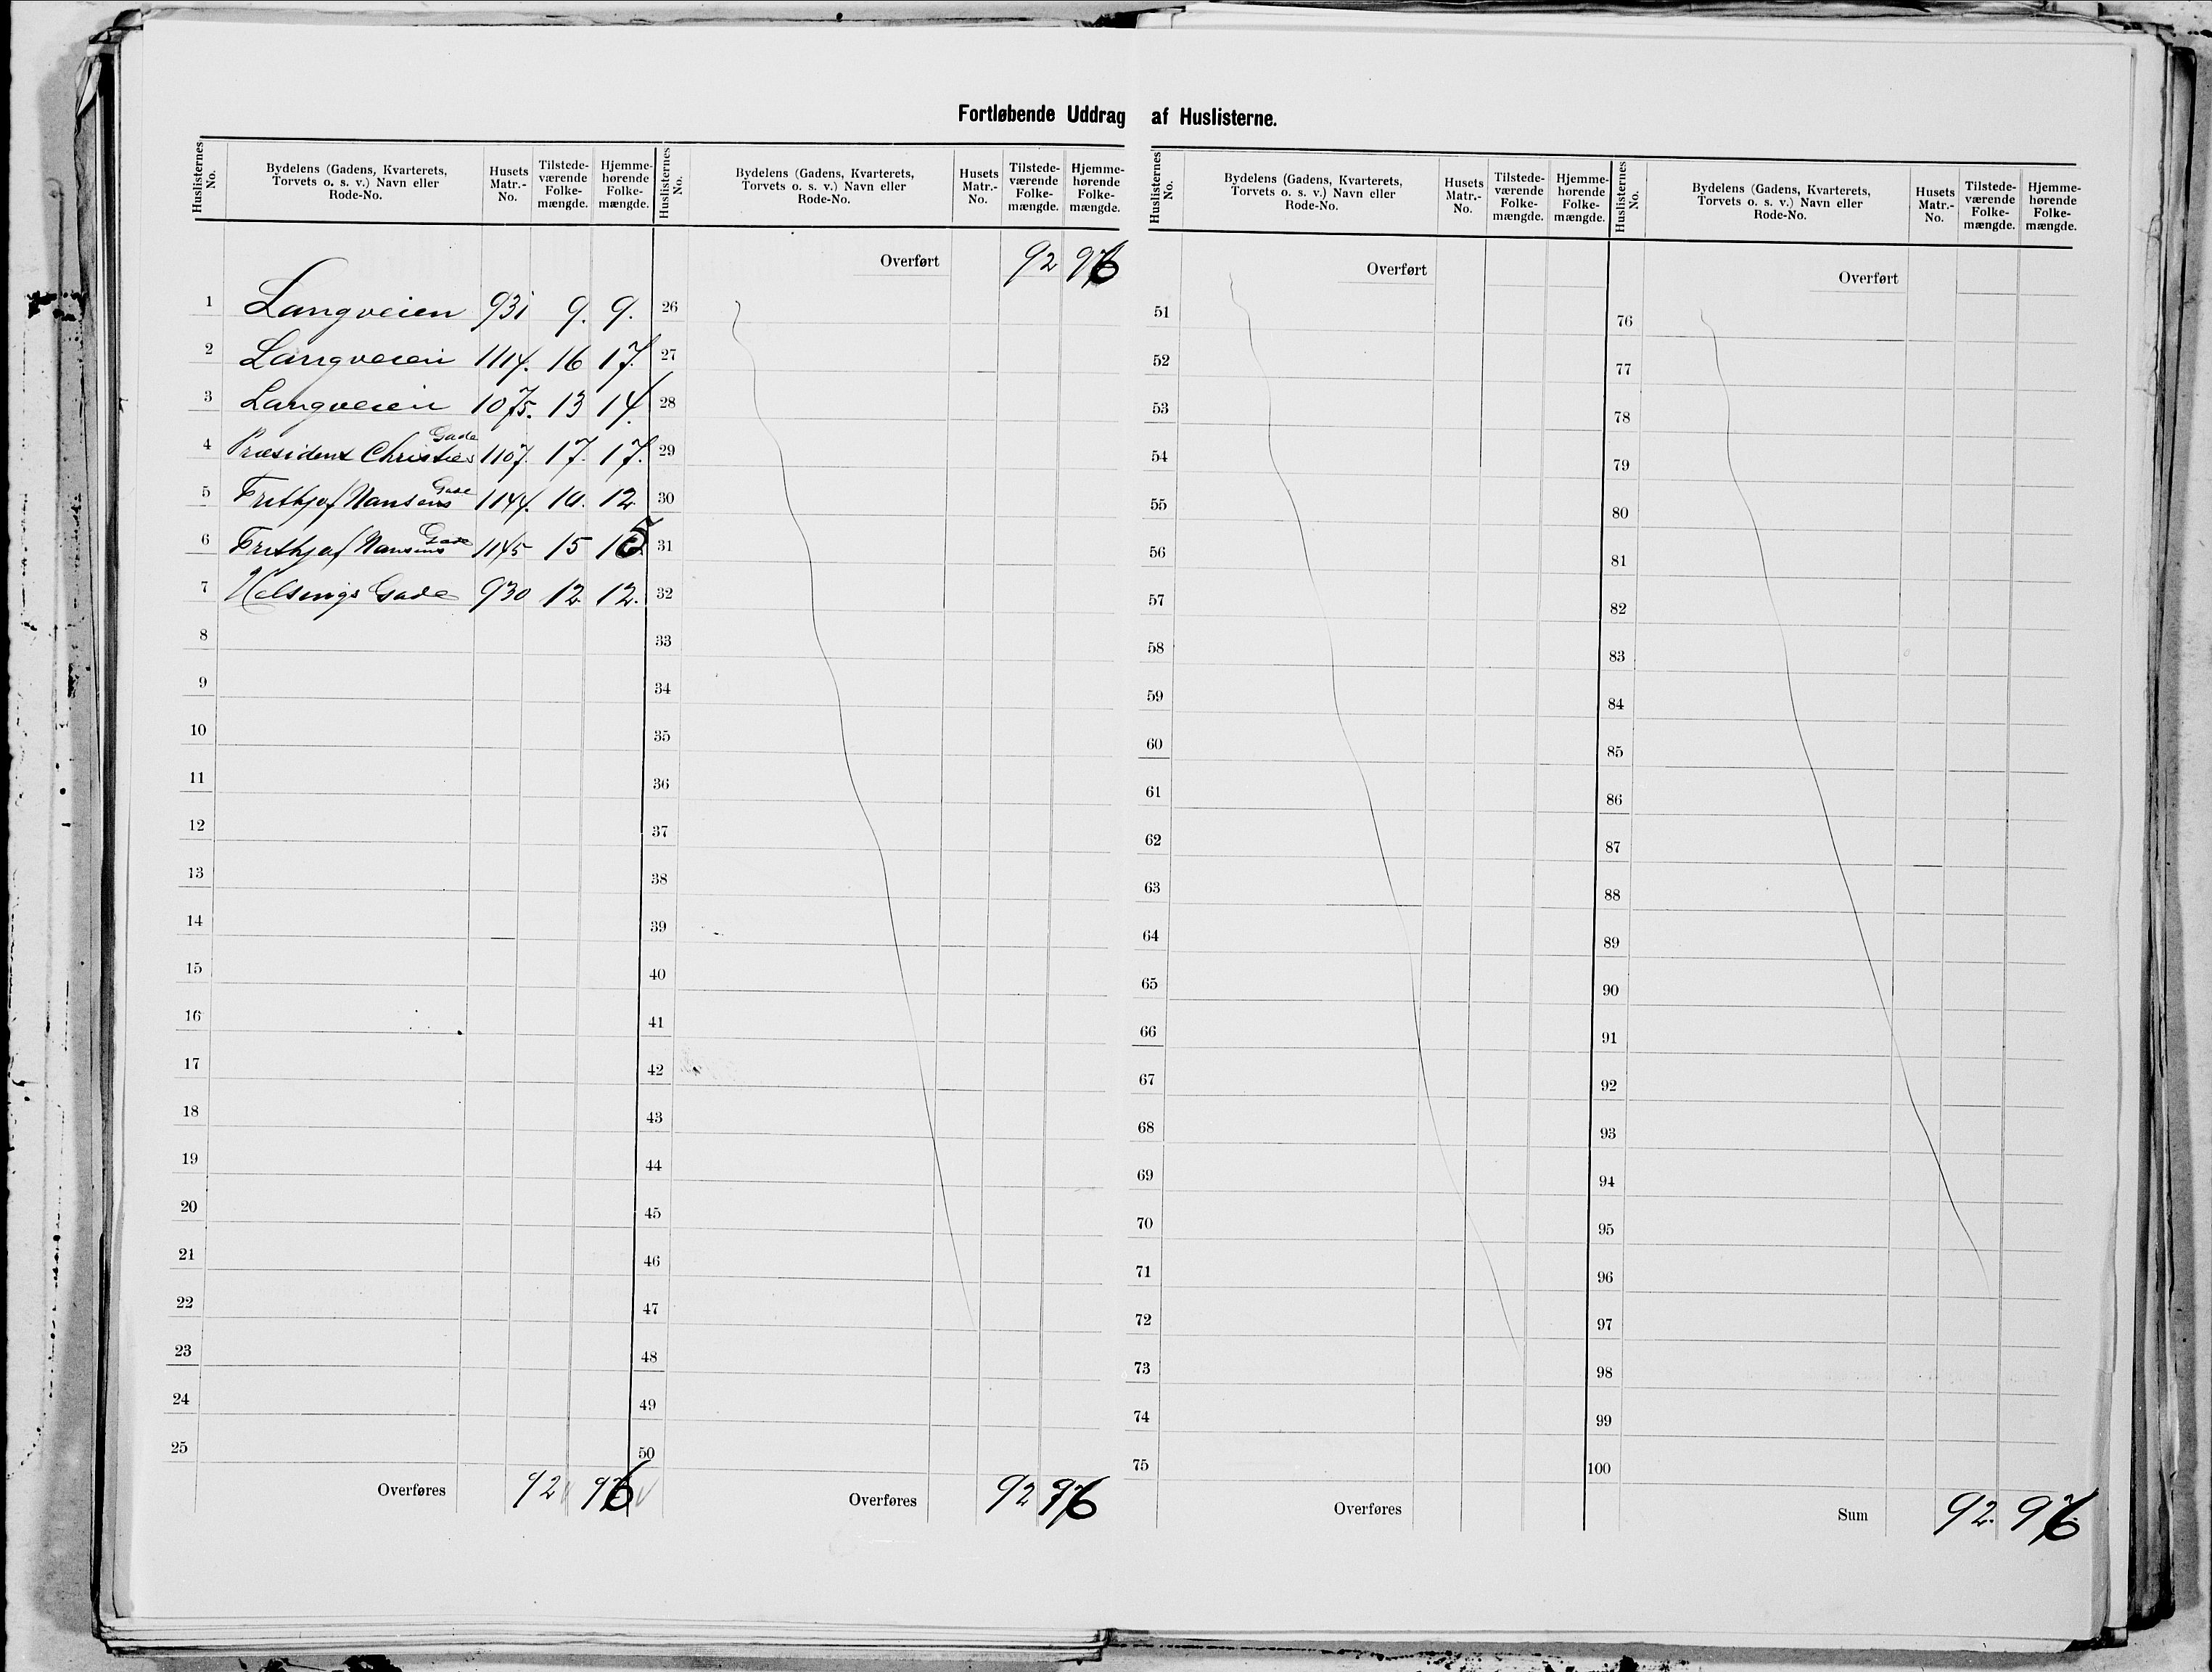 Fortløbende Uddrag af Huslisterne.
Huslisternes No. | Bydelens (Gadens, Kvarterets, Torvets o. s. v.) Navn eller Rode-No. | Husets Matr.-No. | Tilstedeværende Folkemængde. | Hjemmehørende Folkemængde.
1 Langveien 931 9. 9.
2 Langveien 1114. 16 17.
3 Langveien 1075. 13 14.
4 Præsident Christies Gade 1107. 17. 17.
5 Frithjof Nansens Gade 1144. 10. 12
6 Frithjof Nansens Gade 1145 15 15
7 Gade 930 12 12.
8
9
10
11
12
13
14
15
16
17
18
19
20
21
22
23
24
25
Overføres 92 96
Huslisternes No. | Bydelens (Gadens, Kvarterets, Torvets o. s. v.) Navn eller Rode-No. | Husets Matr.-No. | Tilstedeværende Folkemængde. | Hjemmehørende Folkemængde.
Overført 92 96
26
27
28
29
30
31
32
33
34
35
36
37
38
39
40
41
42
43
44
45
46
47
48
49
50
Overføres 92 96
Huslisternes No. | Bydelens (Gadens, Kvarterets, Torvets o. s. v.) Navn eller Rode-No. | Husets Matr.-No. | Tilstedeværende Folkemængde. | Hjemmehørende Folkemængde.
Overført
51
52
53
54
55
56
57
58
59
60
61
62
63
64
65
66
67
68
69
70
71
72
73
74
75
Overføres
Huslisternes No. | Bydelens (Gadens, Kvarterets, Torvets o. s. v.) Navn eller Rode-No. | Husets Matr.-No. | Tilstedeværende Folkemængde. | Hjemmehørende Folkemængde.
Overført
76
77
78
79
80
81
82
83
84
85
86
87
88
89
90
91
92
93
94
95
96
97
98
99
100
Sum 92. 96